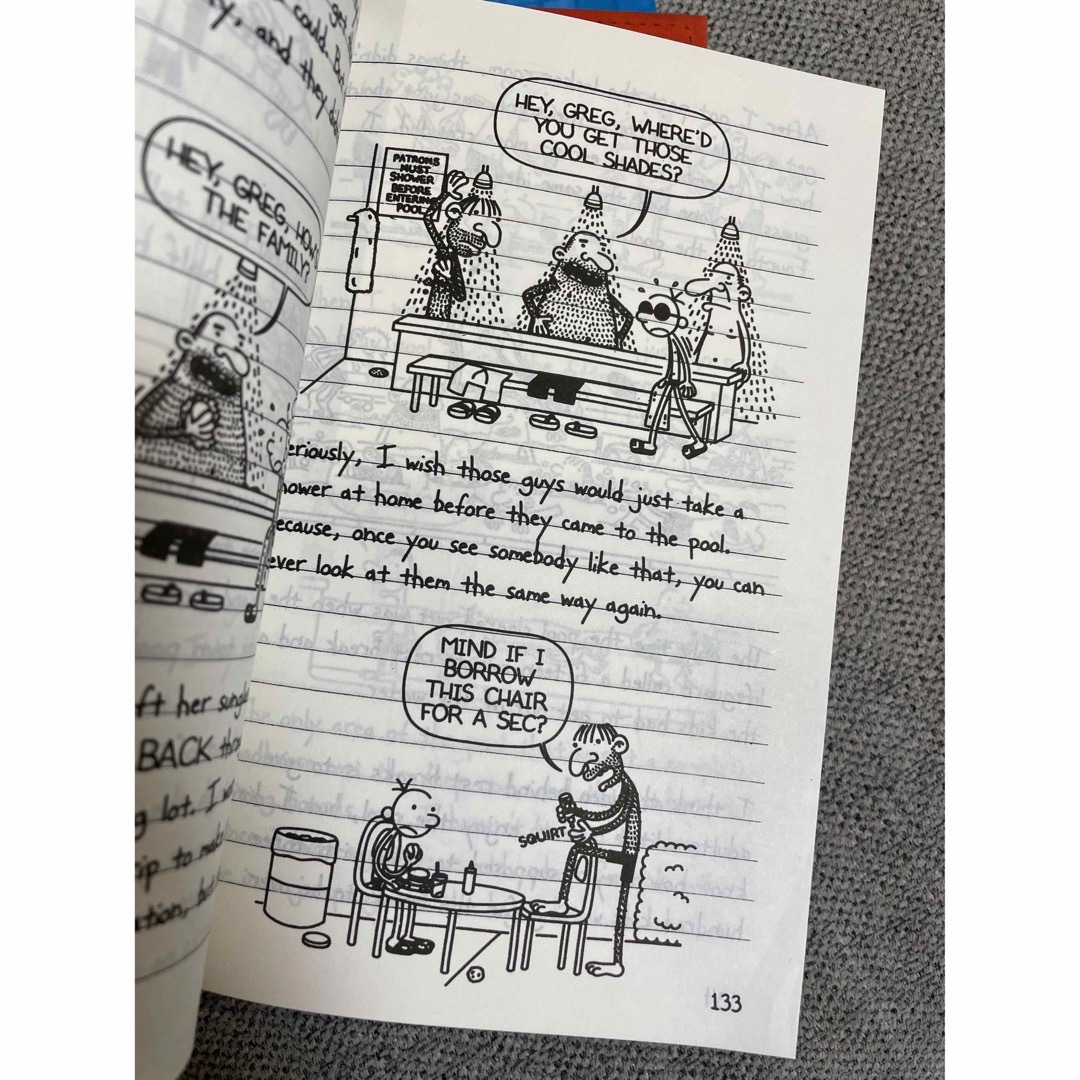 get
could. But
and they
HEY, GREG, HOW'S
THE FAMILY?
ft her
BACK
g lot. I
ip to
ation,
HEY, GREG, WHERE'D
YOU GET THOSE
COOL SHADES?
PATRONS
MUST
SHOWER
BEFORE
ENTERING
POOL
eriously, I wish those guys would just take a
hower at home before they came to the pool.
ecause, once you see somebody like that, you can
ever look at them the same way again.
MIND IF I
BORROW
THIS CHAIR
FOR A SEC?
SQUIRT
133